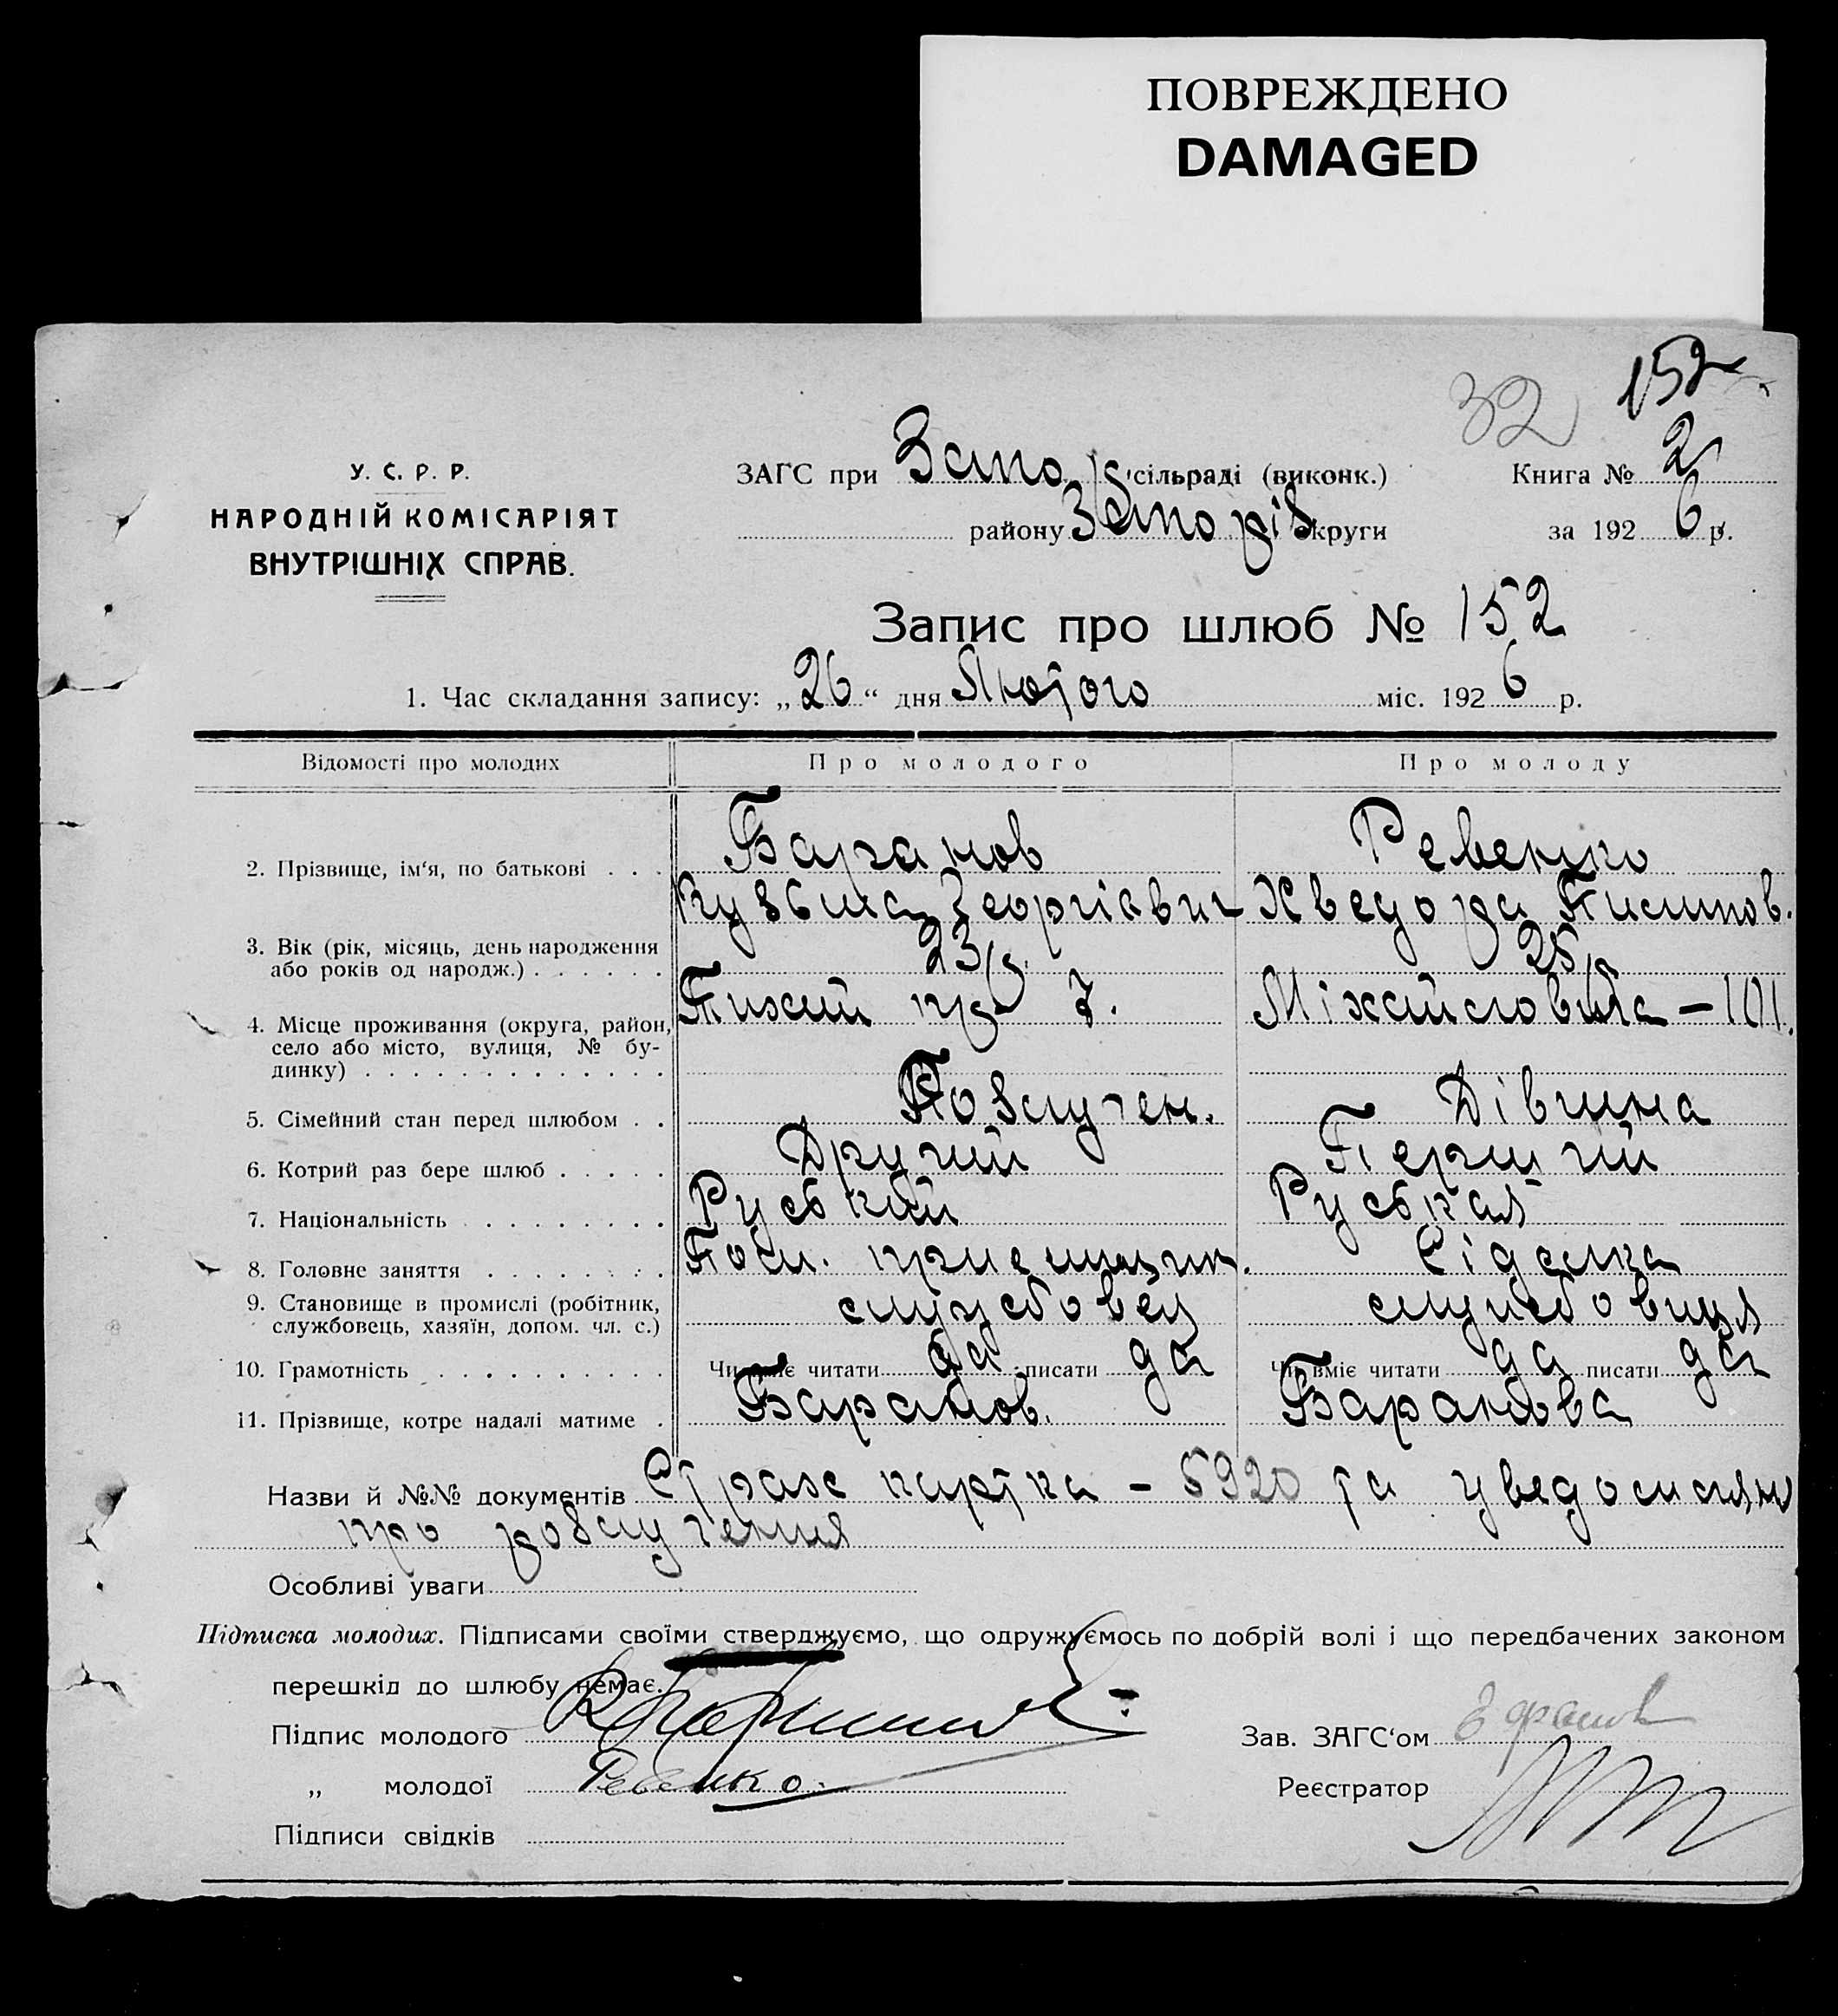 ПОВРЕЖДЕНО
DAMAGED
152
32
У. С. Р. Р.
НАРОДНІЙ КОМІСАРІЯТ
ВНУТРІШНІХ СПРАВ.
ЗАГС при Запо сільраді (виконк.)
району Запоріз округи
Книга № 2
за 1926 р.
Запис про шлюб № 152
1. Час складання запису: „26“ дня Лютого міс. 1926 р.
Відомості про молодих Про молодого Про молоду
2. Прізвище, ім‘я, по батькові . . . Баранов Ревенко
Кузьма Георгіевич Хведора Пилипов.
3. Вік (рік, місяць, день народження або років од народж.) . . . . . . 23 р. 25 р
4. Місце проживання (округа, район, село або місто, вулиця, № будинку) . . . . . . . . . . . . . Тихий пр 7. Міхайловска – 101.
5. Сімейний стан перед шлюбом . . Розлучен. Дівчина
6. Котрий раз бере шлюб . . . . . Другий Перший
7. Національність . . . . . . . . Руський Руськая
8. Головне заняття . . . . . . . . приемщик. Сіделка
9. Становище в промислі (робітник, службовець, хазяїн, допом. чл. с.) службовец службовиця
10. Грамотність . . . . . . . . . . Чи вміє читати да писати да Чи вміє читати да писати да
11. Прізвище, котре надалі матиме . Баранов. Баранова
Назви й №№ документів Страх картка – 5920 та уведомлян
про розлучения
Особливі уваги
Підписка молодих. Підписами своїми стверджуємо, що одружуємось по добрій волі і що передбачених законом
перешкід до шлюбу немає.
Підпис молодого
Зав. ЗАГС‘ом
„ молодої Ревенко.
Реєстратор
Підписи свідків